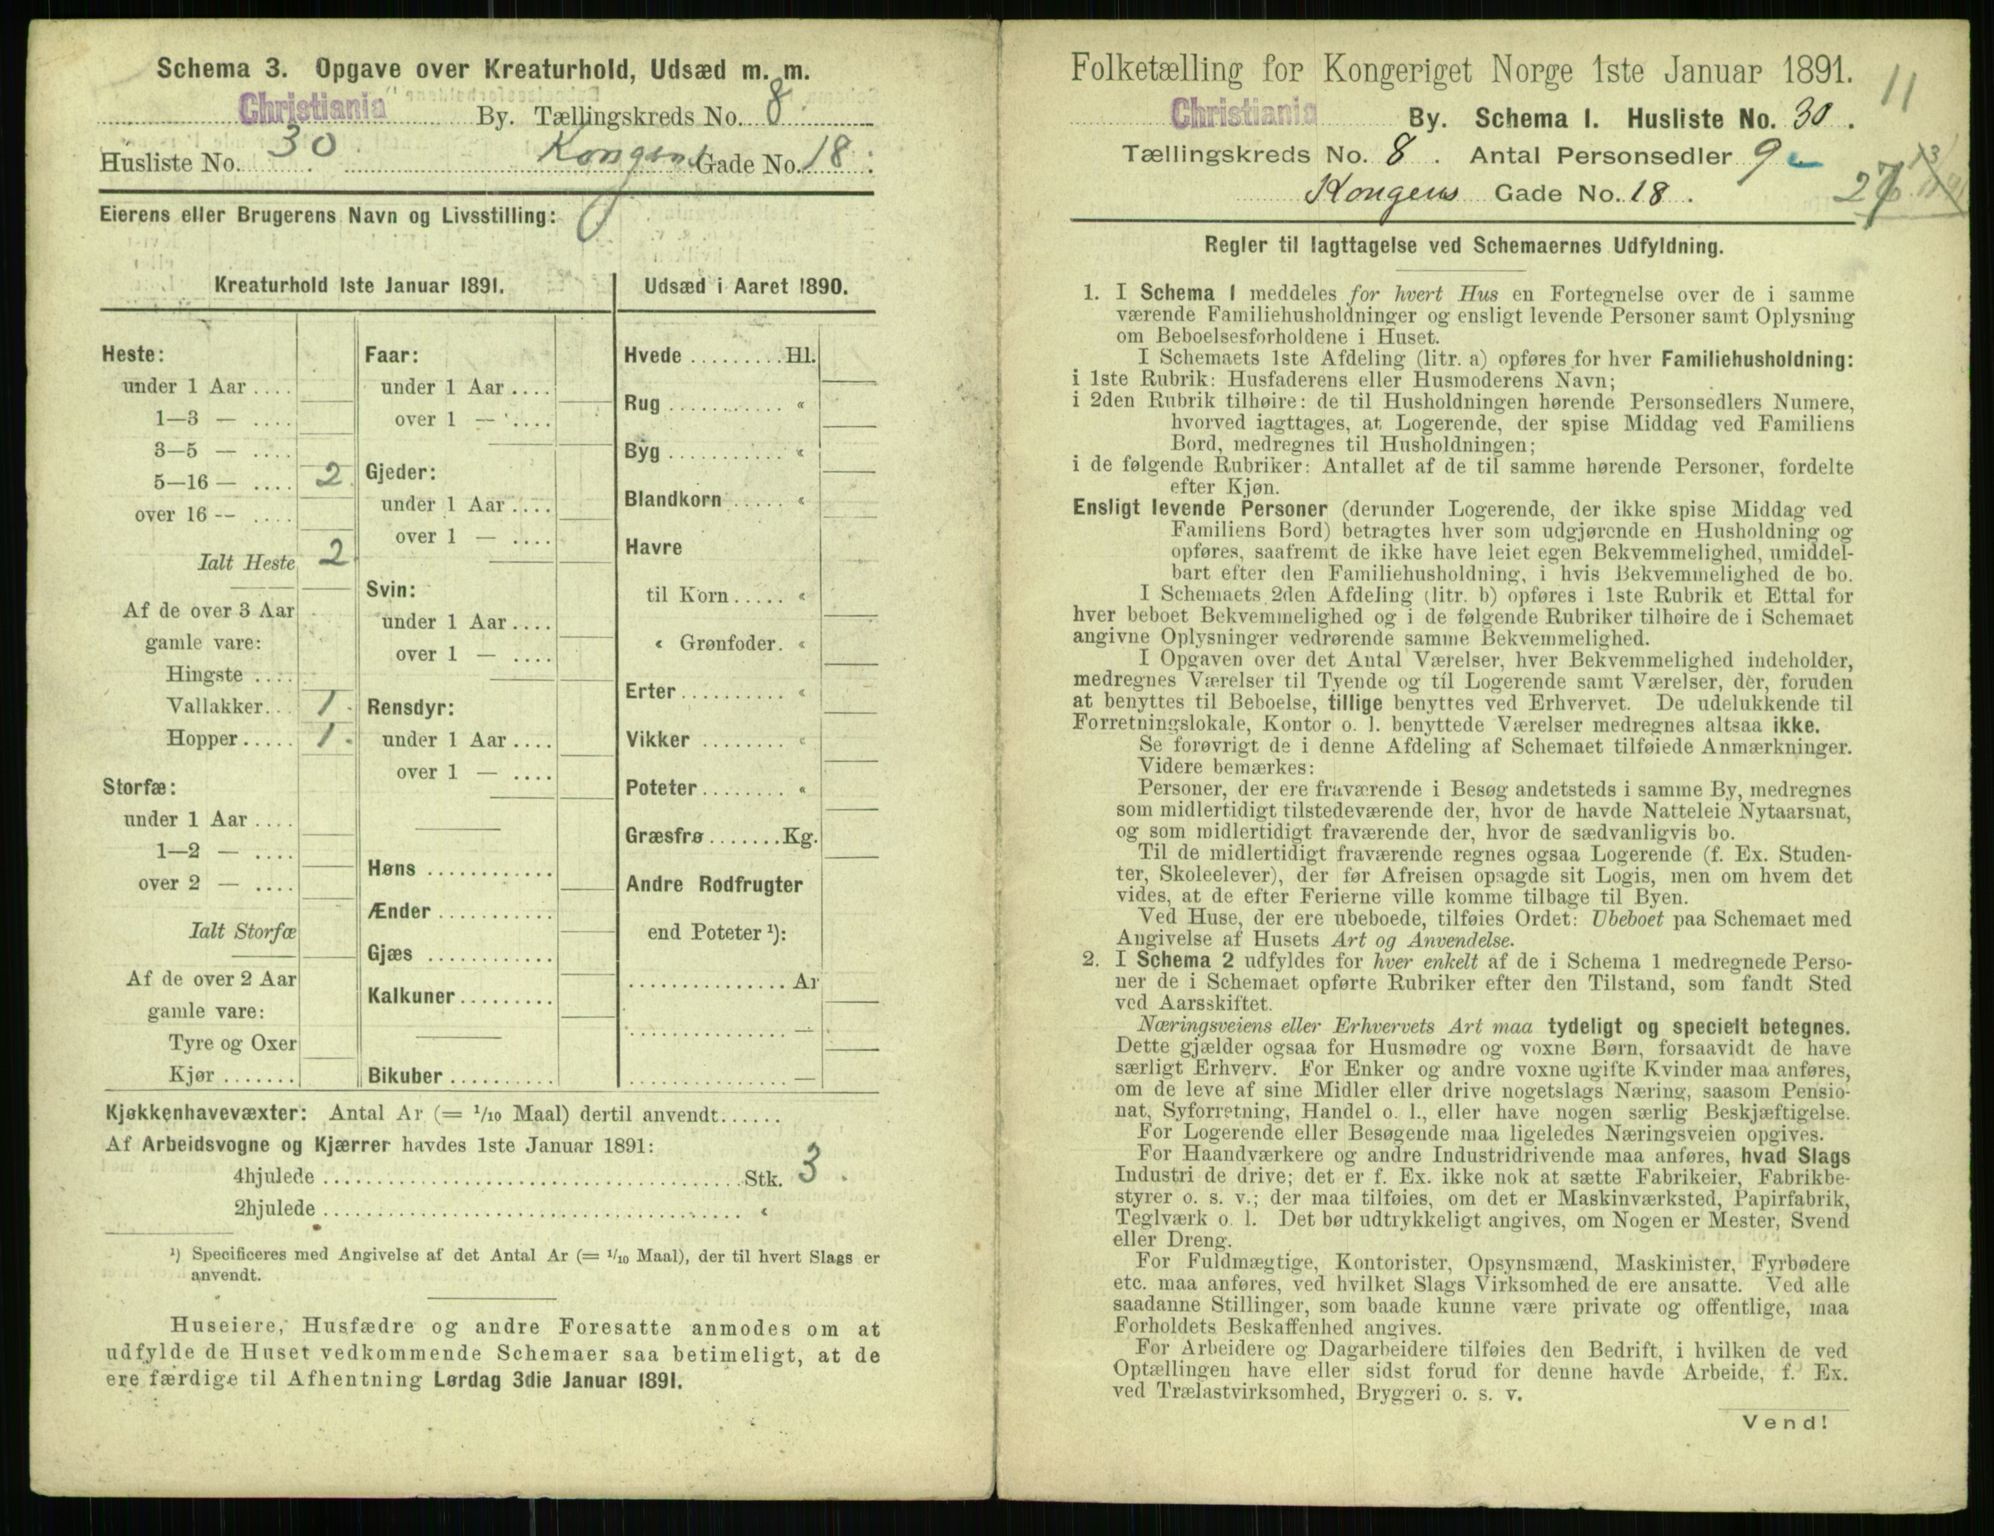 Schema 3. Opgave over Kreaturhold, Udsæd m. m.
Christiania By. Tællingskreds No. 8.
Husliste No. 30. Kongens Gade No. 18.
Eierens eller Brugerens Navn og Livsstilling:
Kreaturhold 1ste Januar 1891.
Heste:
under 1 Aar ....
1—3 — ....
3—5 — ....
5—16 — .... 2.
over 16 -- ....
Ialt Heste 2
Af de over 3 Aar
gamle vare:
Hingste ....
Vallakker... 1.
Hopper..... 1.
Storfæ:
under 1 Aar ....
1—2 — ....
over 2 — ....
Ialt Storfæ
Af de over 2 Aar
gamle vare:
Tyre og Oxer
Kjør .......
Faar:
under 1 Aar ....
over 1 — ....
Gjeder:
under 1 Aar ....
over 1 — ....
Svin:
under 1 Aar ....
over 1 — ....
Rensdyr:
under 1 Aar ....
over 1 — ....
Høns ............
Ænder ...........
Gjæs ............
Kalkuner .........
Bikuber ..........
Udsæd i Aaret 1890.
Hvede .........Hl.
Rug ........... «
Byg ........... «
Blandkorn ..... «
Havre
til Korn ..... «
« Grønfoder. «
Erter ......... «
Vikker ........ «
Poteter ........ «
Græsfrø .......Kg.
Andre Rodfrugter
end Poteter ¹):
...............Ar
............... —
............... —
Kjøkkenhavevæxter: Antal Ar (= 1/10 Maal) dertil anvendt......
Af Arbeidsvogne og Kjærrer havdes 1ste Januar 1891:
4hjulede ........................................Stk. 3.
2hjulede ........................................ «
¹) Specificeres med Angivelse af det Antal Ar (= 1/10 Maal), der til hvert Slags er
anvendt.
Huseiere, Husfædre og andre Foresatte anmodes om at
udfylde de Huset vedkommende Schemaer saa betimeligt, at de
ere færdige til Afhentning Lørdag 3die Januar 1891.
Folketælling for Kongeriget Norge 1ste Januar 1891.
11
Christiania By. Schema I. Husliste No. 30.
Tællingskreds No. 8. Antal Personsedler 9
Kongens Gade No. 18.
Regler til Iagttagelse ved Schemaernes Udfyldning.
1. I Schema 1 meddeles for hvert Hus en Fortegnelse over de i samme
værende Familiehusholdninger og ensligt levende Personer samt Oplysning
om Beboelsesforholdene i Huset.
I Schemaets 1ste Afdeling (litr. a) opføres for hver Familiehusholdning:
i 1ste Rubrik: Husfaderens eller Husmoderens Navn;
i 2den Rubrik tilhøire: de til Husholdningen hørende Personsedlers Numere,
hvorved iagttages, at Logerende, der spise Middag ved Familiens
Bord, medregnes til Husholdningen;
i de følgende Rubriker: Antallet af de til samme hørende Personer, fordelte
efter Kjøn.
Ensligt levende Personer (derunder Logerende, der ikke spise Middag ved
Familiens Bord) betragtes hver som udgjørende en Husholdning og
opføres, saafremt de ikke have leiet egen Bekvemmelighed, umiddel-
bart efter den Familiehusholdning, i hvis Bekvemmelighed de bo.
I Schemaets 2den Afdeling (litr. b) opføres i 1ste Rubrik et Ettal for
hver beboet Bekvemmelighed og i de følgende Rubriker tilhøire de i Schemaet
angivne Oplysninger vedrørende samme Bekvemmelighed.
I Opgaven over det Antal Værelser, hver Bekvemmelighed indeholder,
medregnes Værelser til Tyende og til Logerende samt Værelser, der, foruden
at benyttes til Beboelse, tillige benyttes ved Erhvervet. De udelukkende til
Forretningslokale, Kontor o. l. benyttede Værelser medregnes altsaa ikke.
Se forøvrigt de i denne Afdeling af Schemaet tilføiede Anmærkninger.
Videre bemærkes:
Personer, der ere fraværende i Besøg andetsteds i samme By, medregnes
som midlertidigt tilstedeværende der, hvor de havde Natteleie Nytaarsnat,
og som midlertidigt fraværende der, hvor de sædvanligvis bo.
Til de midlertidigt fraværende regnes ogsaa Logerende (f. Ex. Studen-
ter, Skoleelever), der før Afreisen opsagde sit Logis, men om hvem det
vides, at de efter Ferierne ville komme tilbage til Byen.
Ved Huse, der ere ubeboede, tilføies Ordet: Ubeboet paa Schemaet med
Angivelse af Husets Art og Anvendelse.
2. I Schema 2 udfyldes for hver enkelt af de i Schema 1 medregnede Perso-
ner de i Schemaet opførte Rubriker efter den Tilstand, som fandt Sted
ved Aarsskiftet.
Næringsveiens eller Erhvervets Art maa tydeligt og specielt betegnes.
Dette gjælder ogsaa for Husmødre og voxne Børn, forsaavidt de have
særligt Erhverv. For Enker og andre voxne ugifte Kvinder maa anføres,
om de leve af sine Midler eller drive nogetslags Næring, saasom Pensio-
nat, Syforretning, Handel o. l., eller have nogen særlig Beskjæftigelse.
For Logerende eller Besøgende maa ligeledes Næringsveien opgives.
For Haandværkere og andre Industridrivende maa anføres, hvad Slags
Industri de drive; det er f. Ex. ikke nok at sætte Fabrikeier, Fabrikbe-
styrer o. s. v.; der maa tilføies, om det er Maskinværksted, Papirfabrik,
Teglværk o. l. Det bør udtrykkeligt angives, om Nogen er Mester, Svend
eller Dreng.
For Fuldmægtige, Kontorister, Opsynsmænd, Maskinister, Fyrbødere
etc. maa anføres, ved hvilket Slags Virksomhed de ere ansatte. Ved alle
saadanne Stillinger, som baade kunne være private og offentlige, maa
Forholdets Beskaffenhed angives.
For Arbeidere og Dagarbeidere tilføies den Bedrift, i hvilken de ved
Optællingen have eller sidst forud for denne havde Arbeide, f. Ex.
ved Trælastvirksomhed, Bryggeri o. s. v.
Vend!